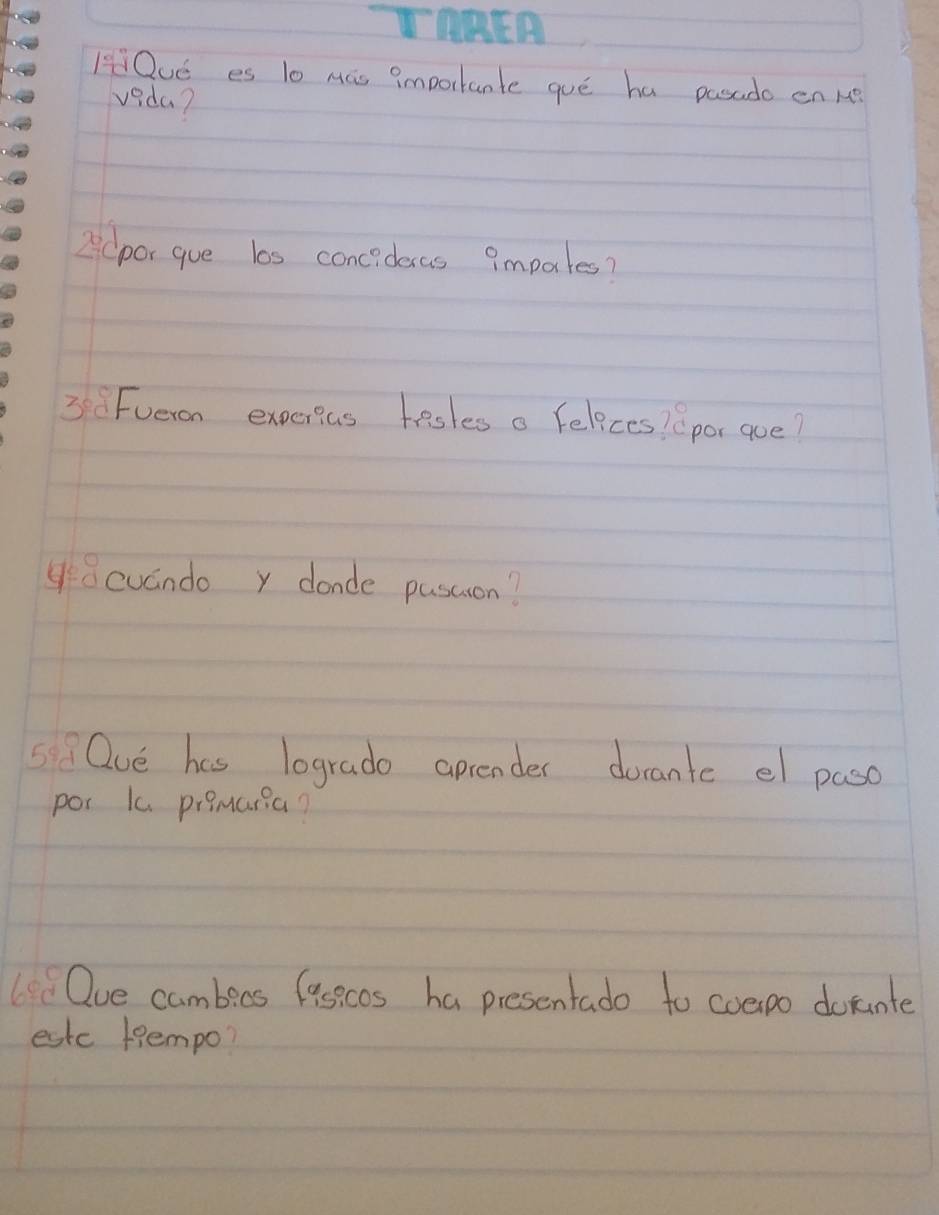 TAREA
1º¿Qué es lo más importante qué ha pasado en mi
vida?
2º¿por que los concideras impotes?
3º¿Fueron experias tristes o felices?¿por que?
4º¿cuándo y donde pasaron?
5º¿Qué has logrado aprender durante el paso
por la primaria?
6º¿Que cambios físicos ha presentado tu cuerpo durante
este tiempo?